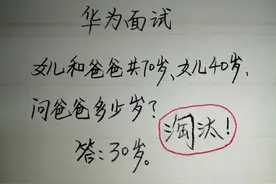 华为面试
女儿和爸爸共70岁、女儿40岁,
问爸爸多少岁?
淘汰!
答:30岁。